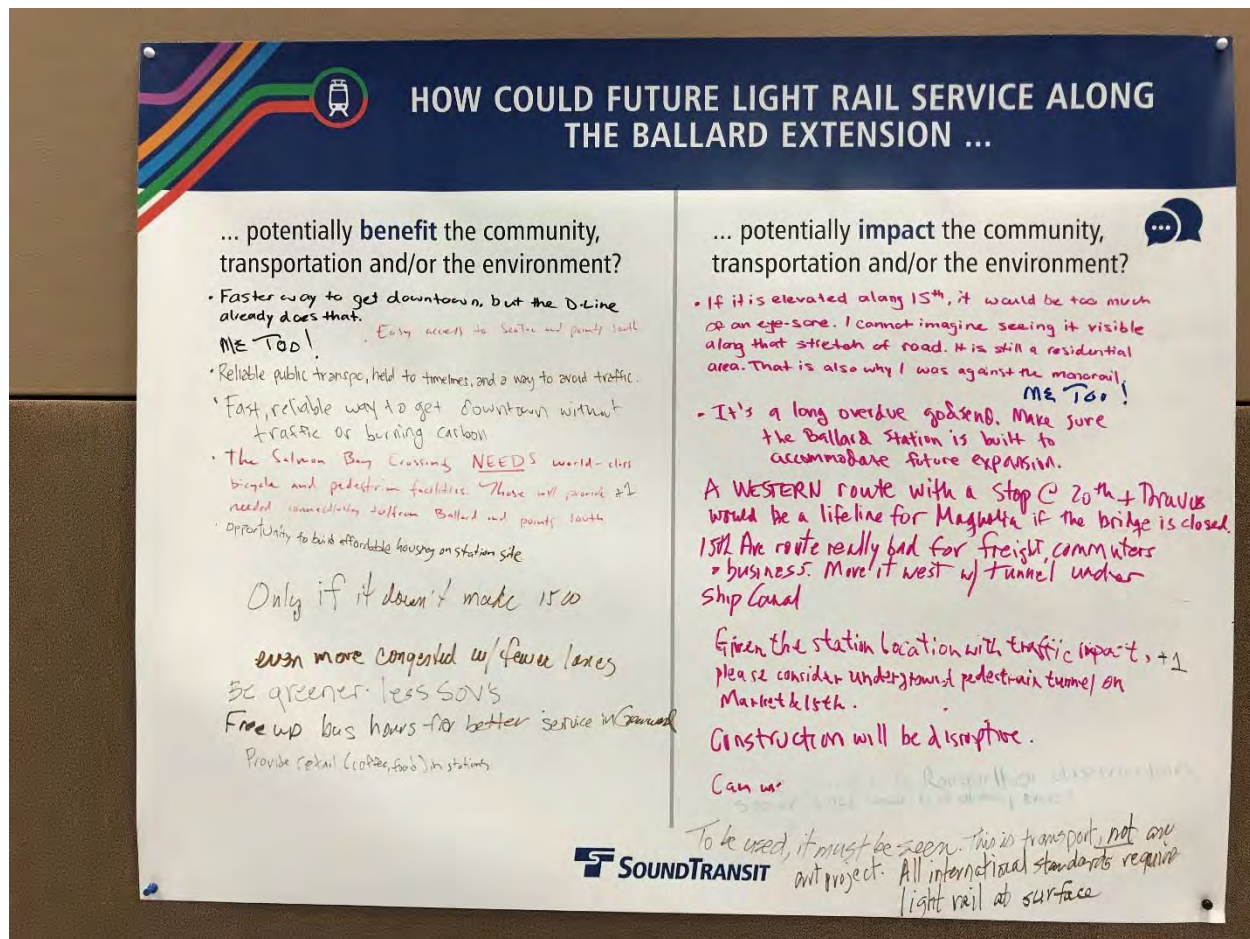 HOW COULD FUTURE LIGHT RAIL SERVICE ALONG
THE BALLARD EXTENSION ...
... potentially benefit the community,
transportation and/or the environment?
• Faster way to get downtown, but the D-Line
already does that.
• Easy access to SeaTac and points south
ME TOO!
• Reliable public transpo, held to timelines, and a way to avoid traffic.
• Fast, reliable way to get downtown without
traffic or burning carbon
• The Salmon Bay Crossing NEEDS world-class
bicycle and pedestrian facilities. These will provide +1
needed connectivity to/from Ballard and points south
• Opportunity to build affordable housing on station site
Only if it doesn't make 15th
even more congested w/ fewer lanes
Be greener. less SOV's
Free up bus hours for better service in
Provide retail (coffee, food) in stations
... potentially impact the community,
transportation and/or the environment?
• If it is elevated along 15th, it would be too much
of an eye-sore. I cannot imagine seeing it visible
along that stretch of road. It is still a residential
area. That is also why I was against the monorail.
ME TOO!
• It's a long overdue godsend. Make sure
the Ballard Station is built to
accommodate future expansion.
A WESTERN route with a stop @ 20th + Thravus
would be a lifeline for Magnolia if the bridge is closed.
15th Ave route really bad for freight, commuters
+ business. Move it west w/ tunnel under
Ship Canal
Given the station location with traffic impact, +1
please consider underground pedestrain tunnel on
Market & 15th.
Construction will be disruptive.
Can we
To be used, it must be seen. This is transport, not an
art project. All international standards require
light rail at surface
SOUNDTRANSIT